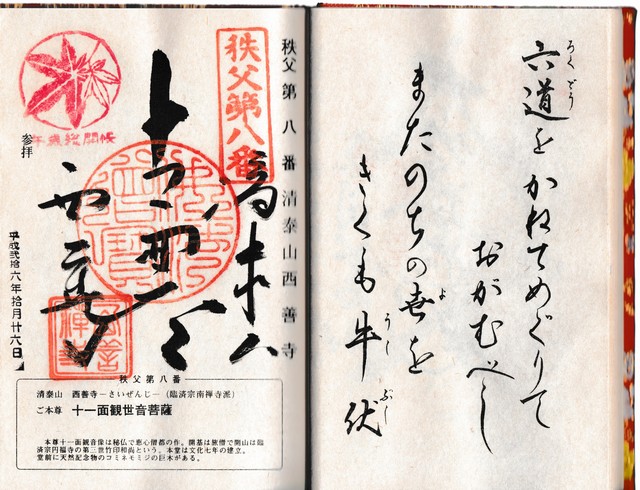 六道をかねてめぐりて
ろくどう
おがむべし
またのちの世を
よ
きくも牛伏
うしぶし
秩父第八番 清泰山西善寺
秩父第八番
十一面
西善寺
午歳総開帳
参拝
平成弐拾六年拾月廿六日
秩父第八番
清泰山 西善寺―さいぜんじ―(臨済宗南禅寺派)
ご本尊 十一面観世音菩薩
本尊十一面観音像は秘仏で恵心僧都の作。開基は旅僧で開山は臨
済宗円福寺の第三世竹印和尚という。本堂は文化七年の建立。
堂前に天然記念物のコミネモミジの巨木がある。